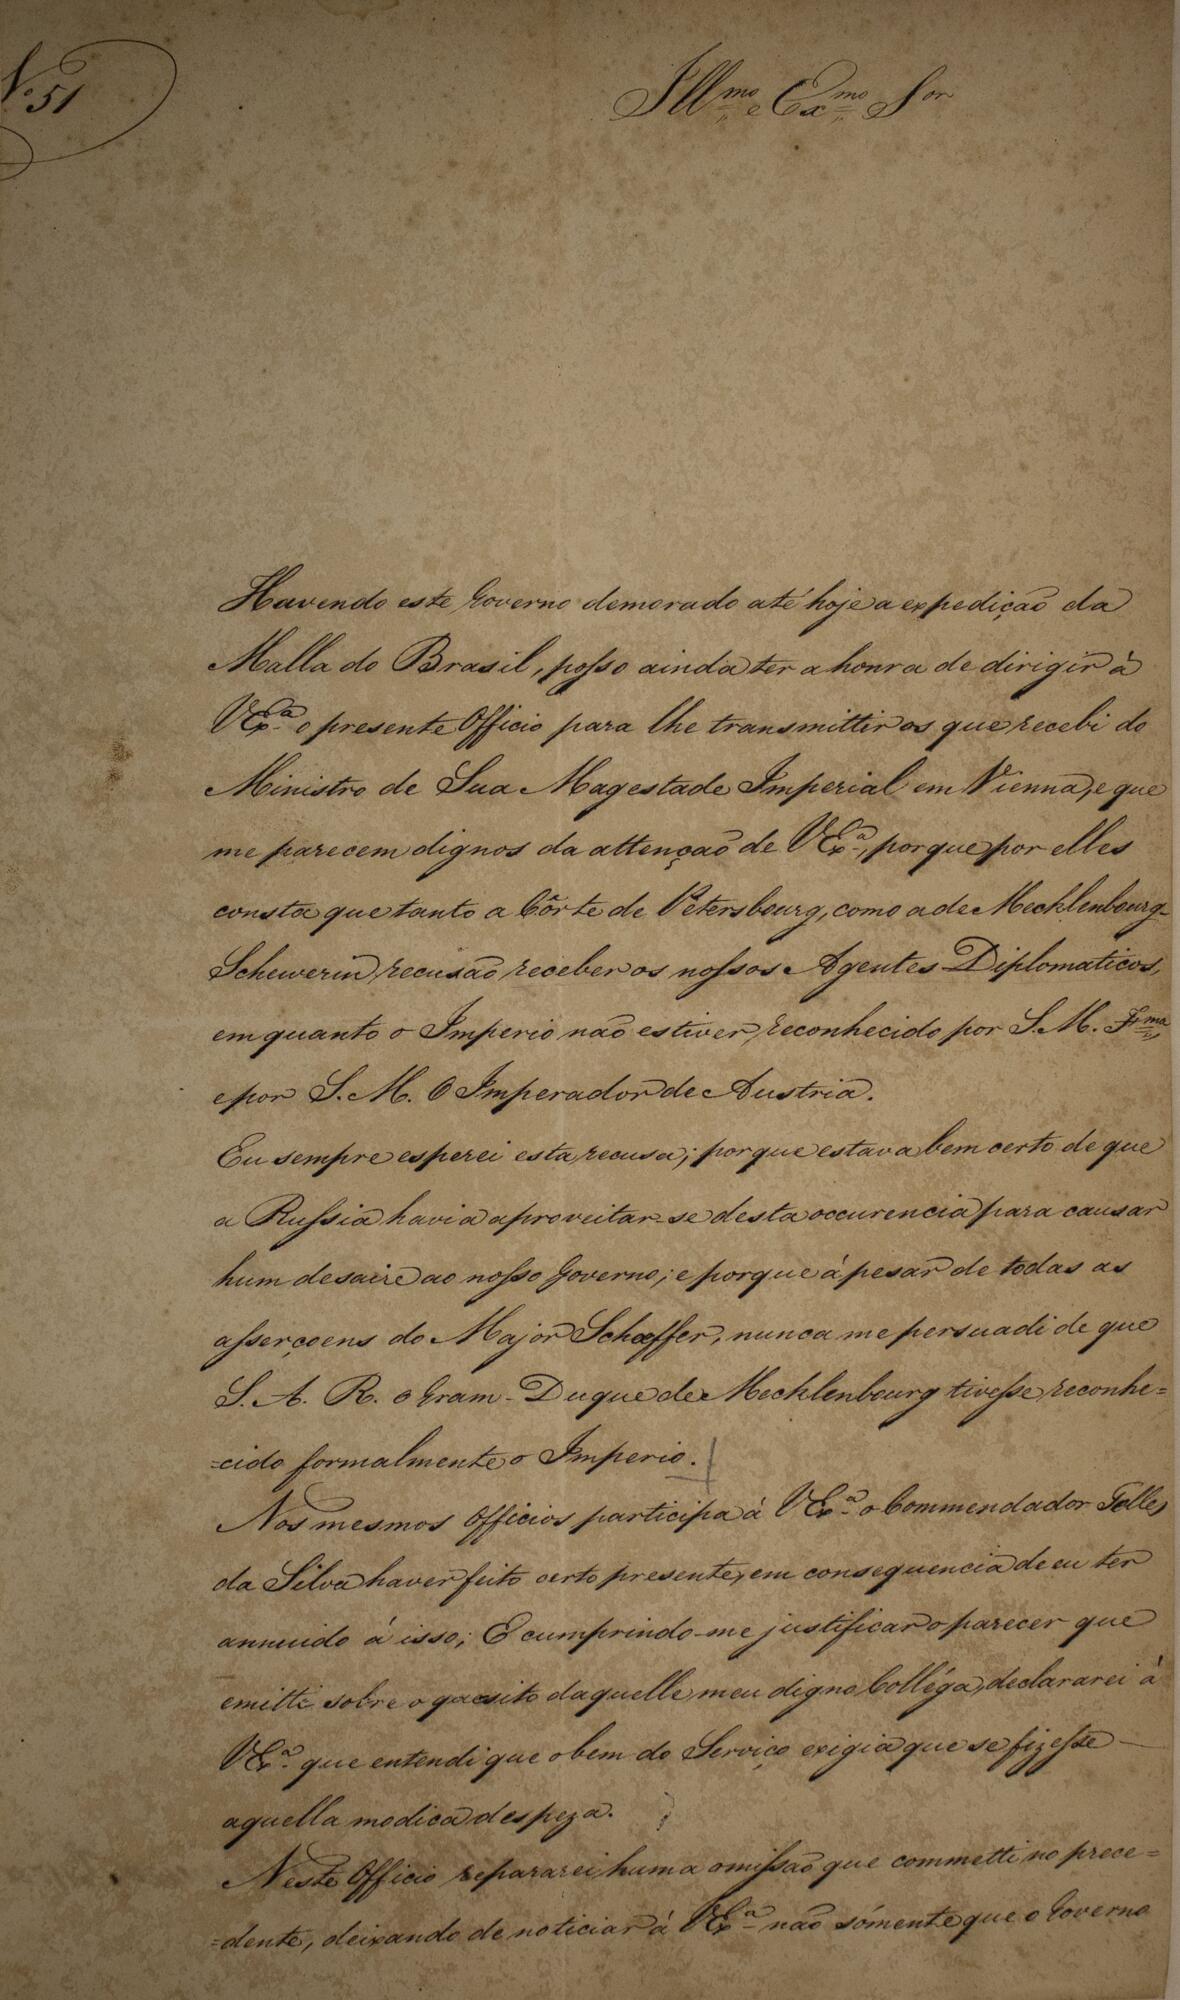 Nº 51
Ill.mo e Ex.mo Sor
Havendo este Governo demorado até hoje a expedição da
Malla do Brasil, posso ainda ter a honra de dirigir à
VEx.ª o presente Officio para lhe transmittir os que recebi do
Ministro de Sua Magestade Imperial em Vienna, e que
me parecem dignos da attenção de VEx.ª, porque por elles
consta que tanto a Côrte de Petersbourg, como a de Mecklenbourg-
Schewerin, recusão receber os nossos Agentes Diplomaticos,
em quanto o Imperio não estiver reconhecido por S. M. F.ma,
e por S. M. O Imperador de Austria.
Eu sempre esperei esta recusa; porque estava bem certo de que
a Russia havia aproveitar-se desta occurencia para causar
hum desaire ao nosso Governo; e porque à pesar de todas as
asserçoens do Major Schæffer, nunca me persuadi de que
S. A. R. o Gram-Duque de Mecklenbourg tivesse reconhe=
=cido formalmente o Imperio.
Nos mesmos Officios participa à VEx.ª o Commendador Telles
da Silva haver feito certo presente, em consequencia de eu ter
annuido á isso; E cumprindo-me justificar o parecer que
emitti sobre o quesito daquelle meu digno Colléga, declararei à
VEx.ª que entendi que o bem do Serviço exigia que se fizesse
aquella modica despeza.
Neste Officio repararei huma omissão que commetti no prece=
=dente, deixando de noticiar à VEx.ª não sómente que o Governo